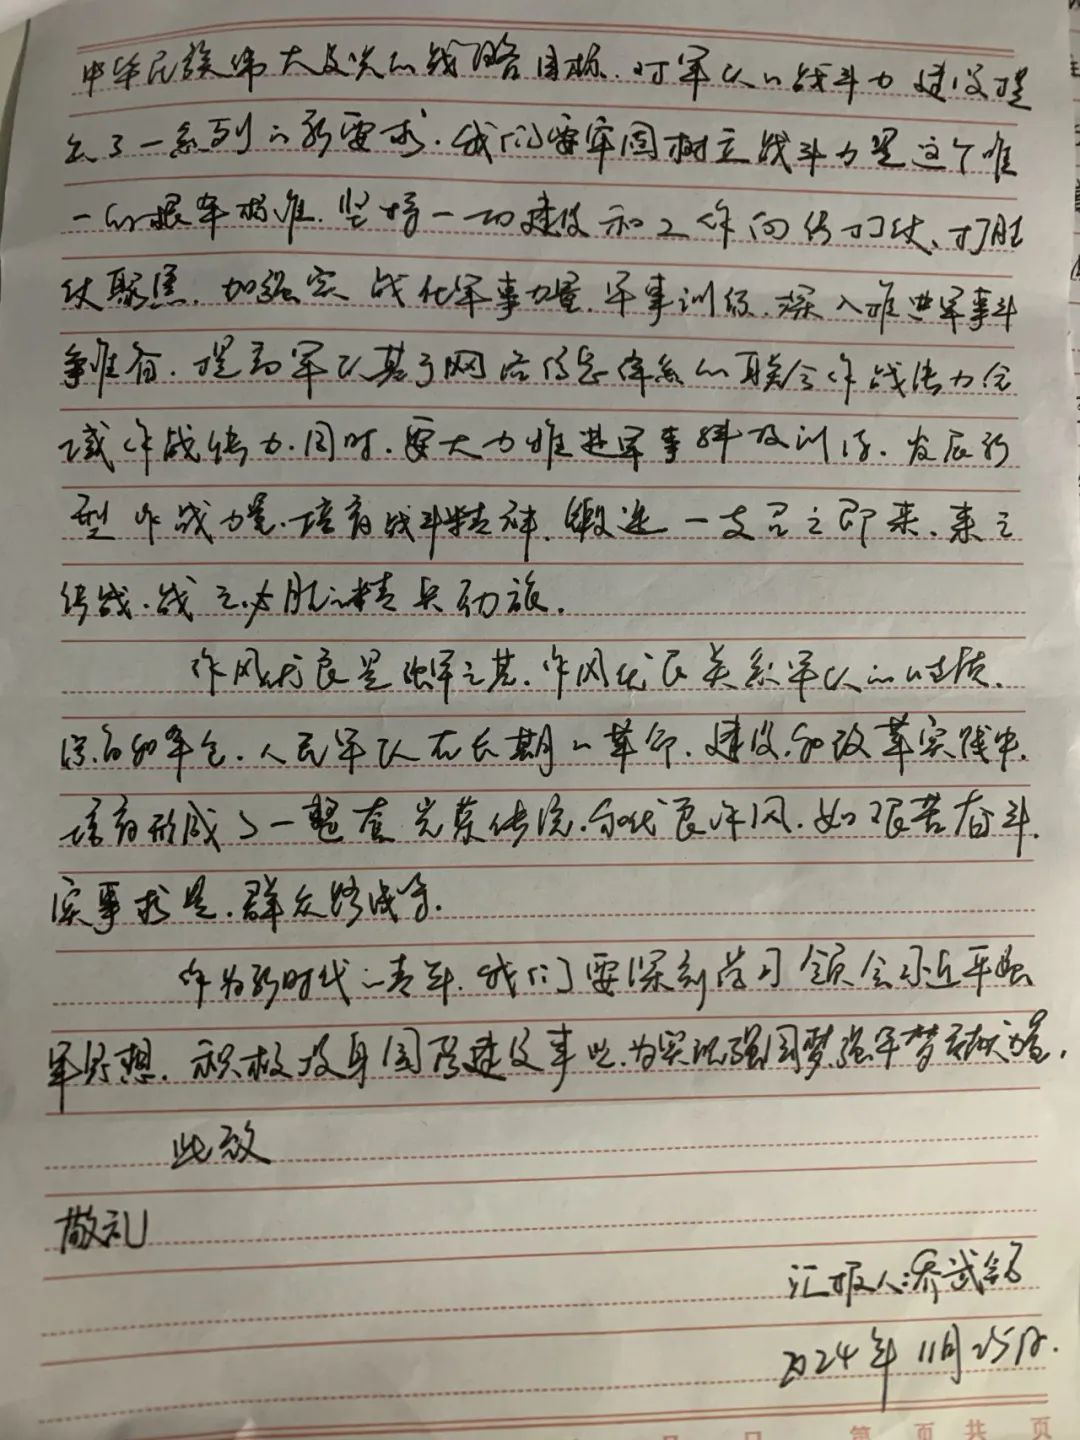 中华民族伟大复兴的战略目标,对军队的战斗力建设提
出了一系列的新要求.我们要牢固树立战斗力是这个唯
一的根本标准.坚持一切建设和工作向能打仗、打胜
仗聚焦.加强实战化军事力量.军事训练.深入推进军事斗
争准备.提高军队基于网络信息体系的联合作战能力全
域作战能力.同时.要大力推进军事科技训练.发展新
型作战力量.培育战斗精神.锻造一支召之即来、来之
能战.战之必胜的精兵劲旅.
作风优良是强军之基.作风优良关系军队的性质.
宗旨和本色.人民军队在长期的革命.建设.和改革实践中.
培育形成了一整套光荣传统.和优良作风.如艰苦奋斗.
实事求是.群众路线等.
作为新时代的青年.我们要深刻学习领会习近平强
军思想.积极投身国防建设事业.为实现强国梦强军梦贡献力量.
此致
敬礼
汇报人:乔武
2024年11月25日.
第 页 共 页